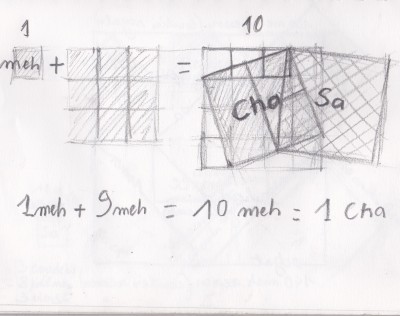 1 10
meh + = Cha Sa
1 meh + 9 meh = 10 meh = 1 Cha